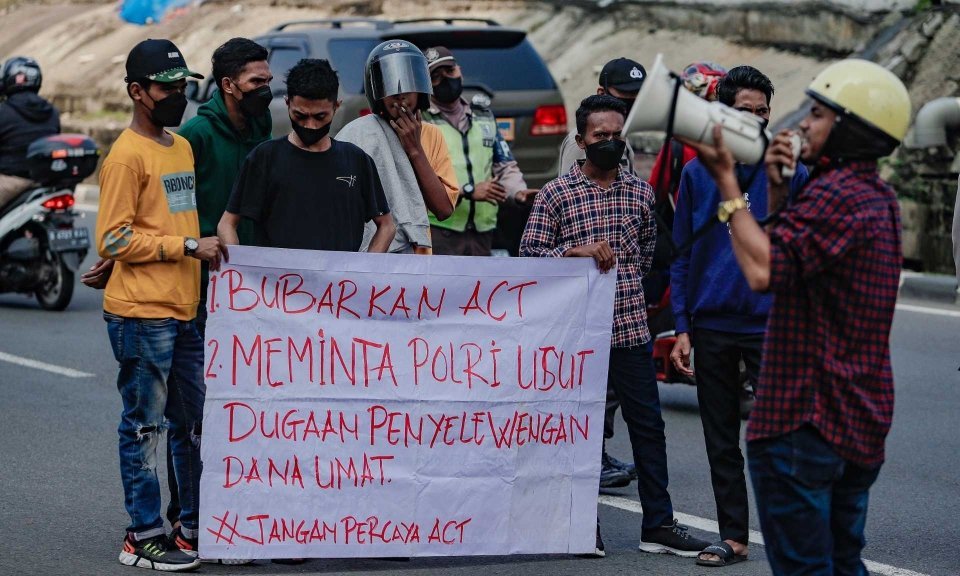 1. BUBARKAM ACT
2. MEMINTA POLRI USUT
DUGAAN PENYELEWENGAN
DANA UMAT.
#JANGAN PERCAYA ACT